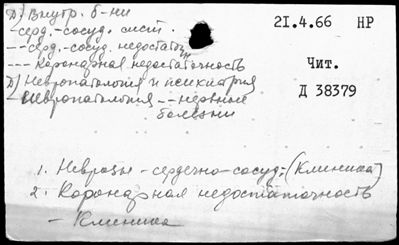 Д) Внутр. б-ни
- серд.-сосуд. сист.
-- серд.-сосуд. недостаточн
--- Коронарная недостаточность
Д) Невропатология и психиатрия
- Невропатология -- нервные
болезни
21.4.66 НР
Чит.
Д 38379
1. Неврозы - сердечно-сосуд. (Клиника)
2. Коронарная недостаточность
- Клиника